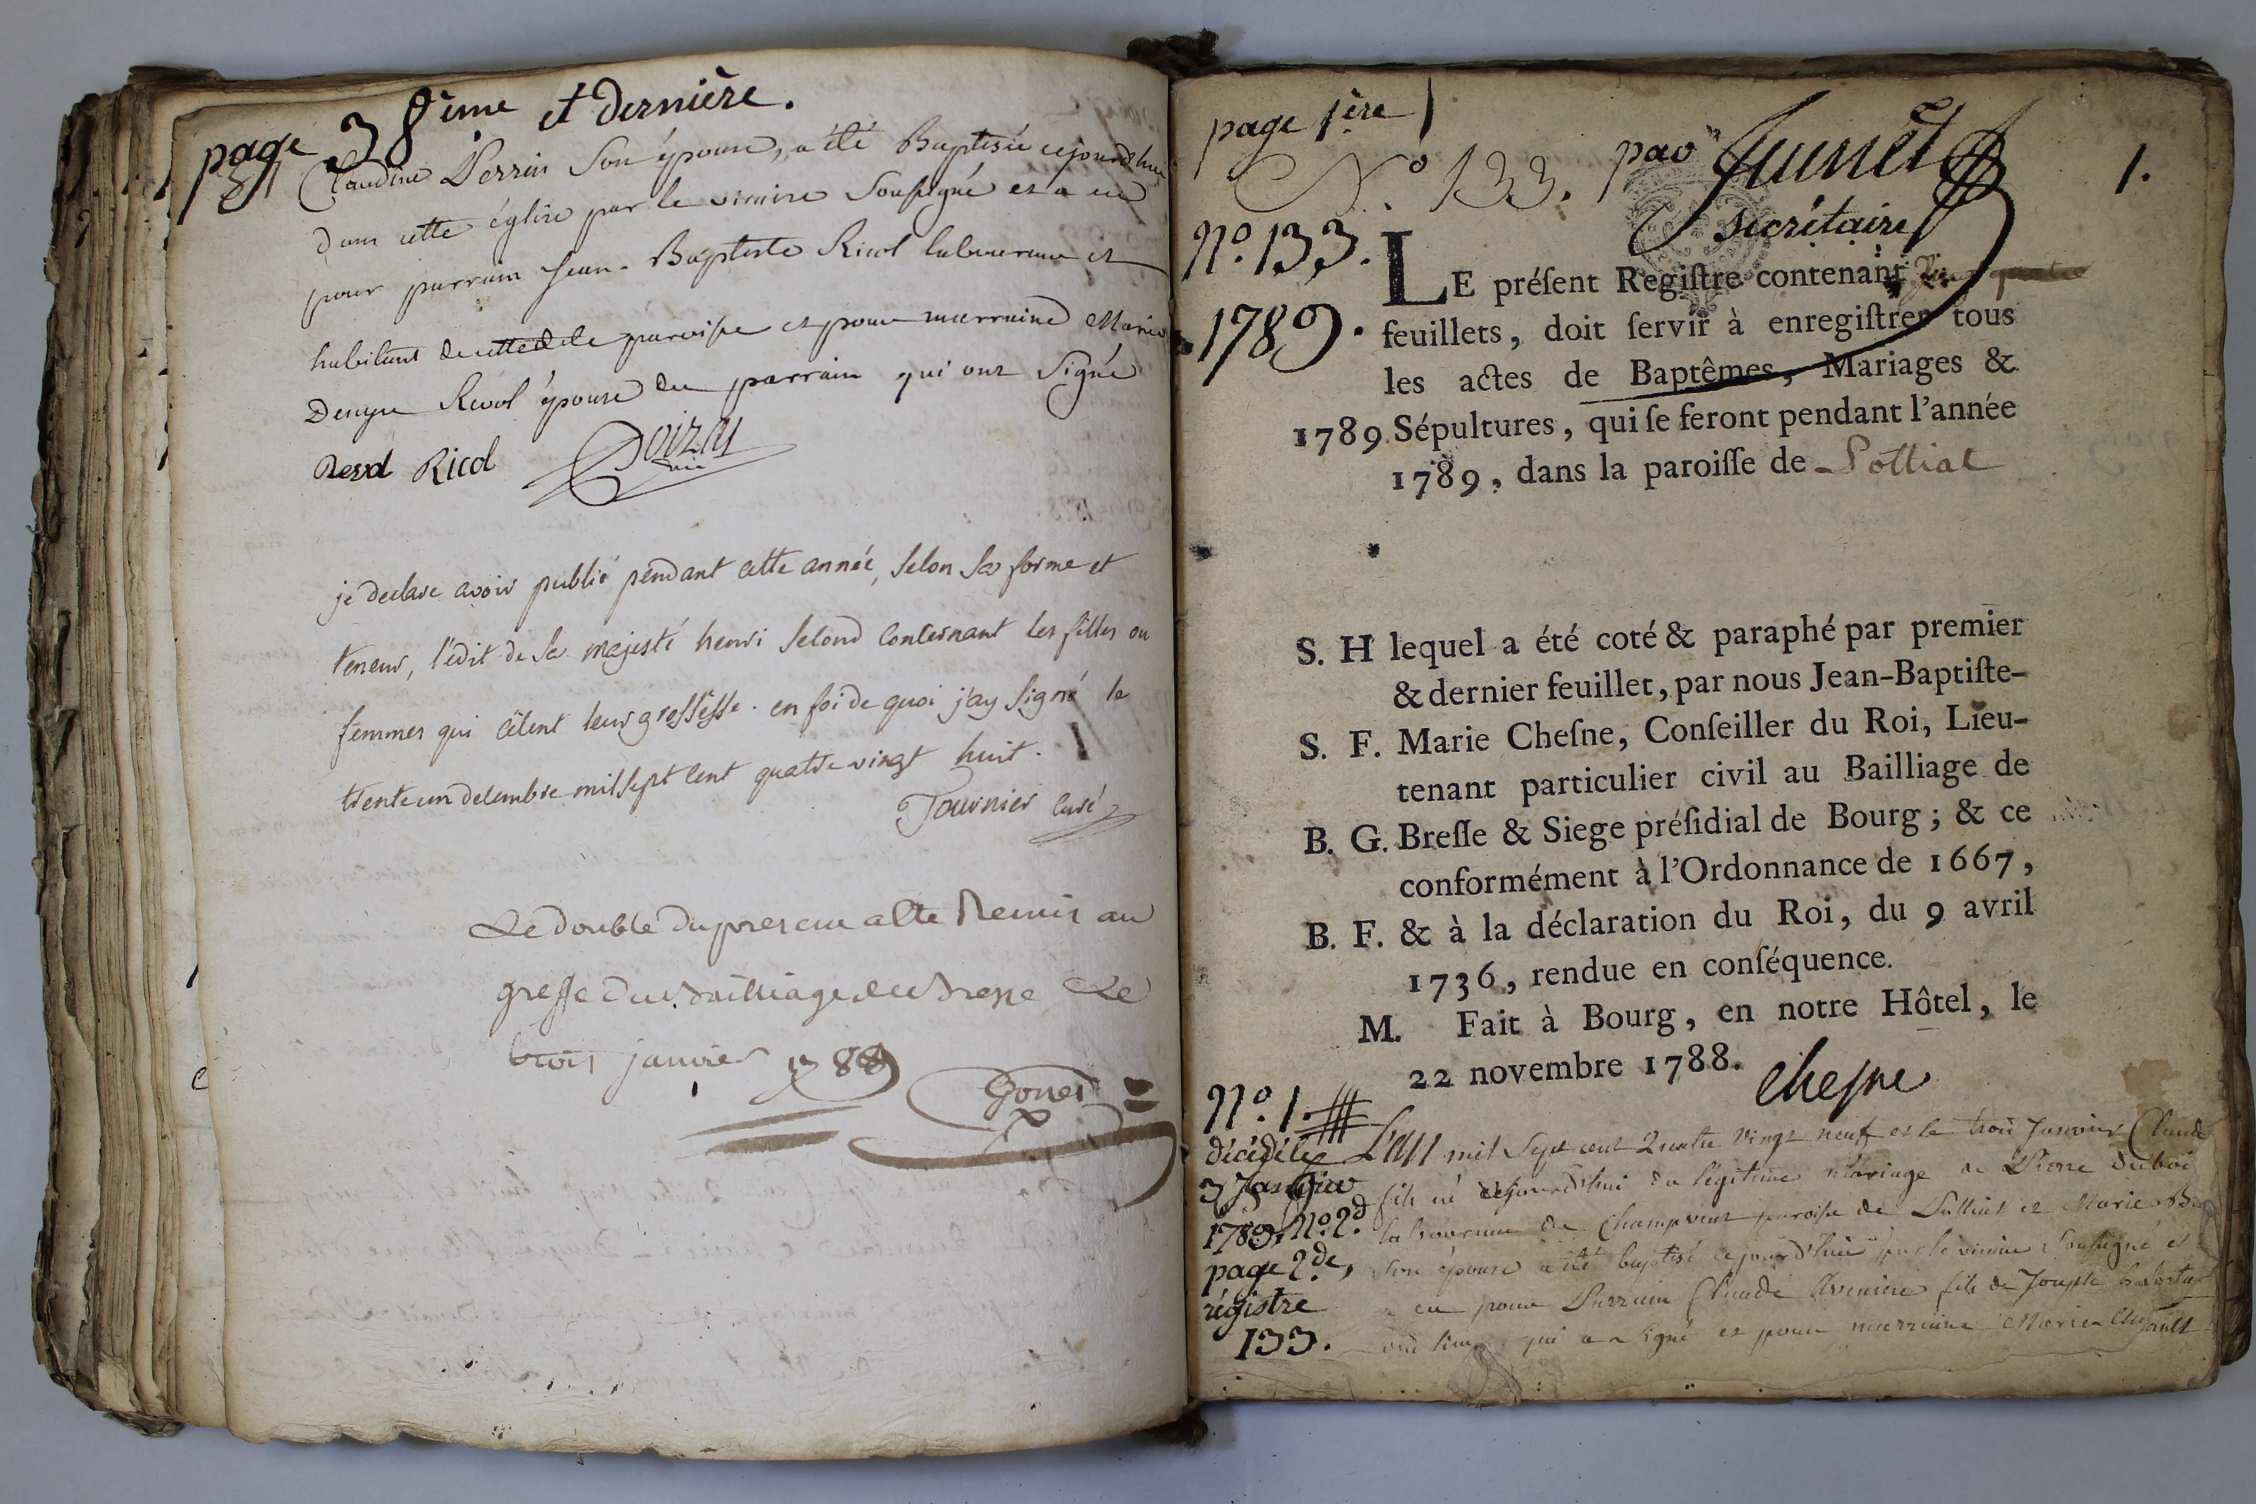 page 38ème et dernière.
Claudine Perrin Son épouse, a été Baptisée cejourdhuy
dans cette église par le vicaire Soussigné et a eu
pour parrain Jean-Baptiste Ricol laboureur et
habitant de cette paroisse et pour marraine Marie
Denyse Revol épouse du parrain qui ont Signé
Revol Ricol
je declare avoir publié pendant cette année, Selon Sa forme et
teneur, l'édit de Sa majesté henri Second Concernant les filles ou
femmes qui célent leur grossesse. en foi de quoi j'ay Signé le
trente un decembre mil Sept Cent quatre vingt huit.
Tournier Curé
Le double du present acte Remis au
greffe du Bailliage de Bresse Le
trois janvier 1789
page 1ère
1.
N° 133. par
Secrétaire
N°. 133.
1789.
LE préſent Regiſtre contenant
feuillets, doit ſervir à enregiſtrer tous
les actes de Baptêmes, Mariages &
1789 Sépultures, qui ſe feront pendant l'année
1789, dans la paroiſſe de Polliat
S. H lequel a été coté & paraphé par premier
& dernier feuillet, par nous Jean-Baptiſte-
S. F. Marie Cheſne, Conſeiller du Roi, Lieu-
tenant particulier civil au Bailliage de
B. G. Breſſe & Siege préſidial de Bourg; & ce
conformément à l'Ordonnance de 1667,
B. F. & à la déclaration du Roi, du 9 avril
1736, rendue en conſéquence.
M. Fait à Bourg, en notre Hôtel, le
22 novembre 1788.
Chesne
N°. 1.
décédé le
3 Janvier
1789, N°. 2d
page 2de,
régistre
133.
L'an mil Sept cent Quatre Vingt neuf et le trois Janvier Claude
fils né cejourd'hui du légitime Mariage de Pierre Duboi
laboureur de Champvent paroisse de Polliat et Marie
Son épouse a été baptisé cejourd'hui par le vicaire Soussigné et
a eu pour Parrain Claude fils de Joseph
qui a Signé et pour marraine Marie